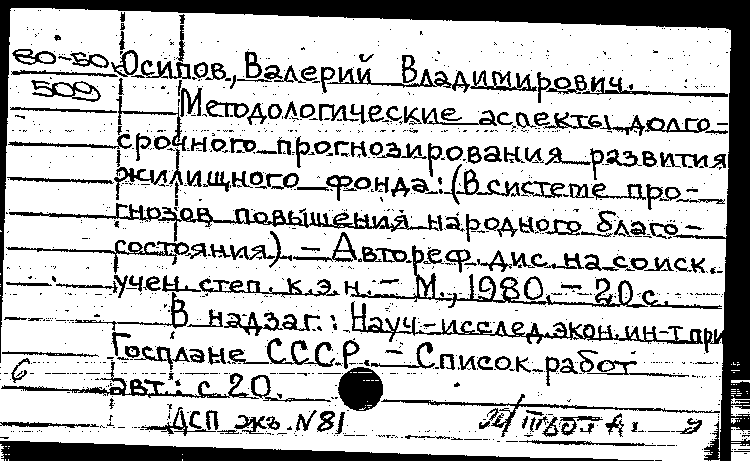 80-50 Осипов, Валерий Владимирович.
509 Методологические аспекты долго-
срочного прогнозирования развития
жилищного фонда: (В системе про-
гнозов повышения народного благо-
состояния). – Автореф. дис. на соиск.
учен. степ. к.э.н. – М., 1980. – 20 с.
В надзаг.: Науч-исслед. экон. ин-т при
Госплане СССР. – Список работ
авт.: с 20.
б
ДСП экз. N 81